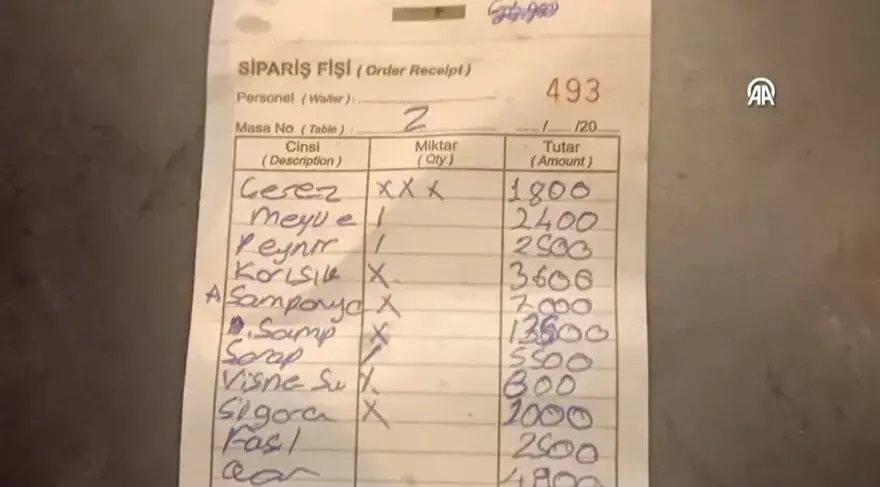 SİPARİŞ FİŞİ (Order Receipt)
493
Personel (Waiter):
Masa No (Table): 2 / /20
Cinsi Miktar Tutar
(Description) (Qty) (Amount)
Cerez X X X 1800
Meyve / 2400
Peynir / 2500
Karışık X 3600
A Sampanya X 7000
Samp X
Sarap / 5500
Visne Su X 800
Sigara X 2000
Fasıl 2500
4800
AA